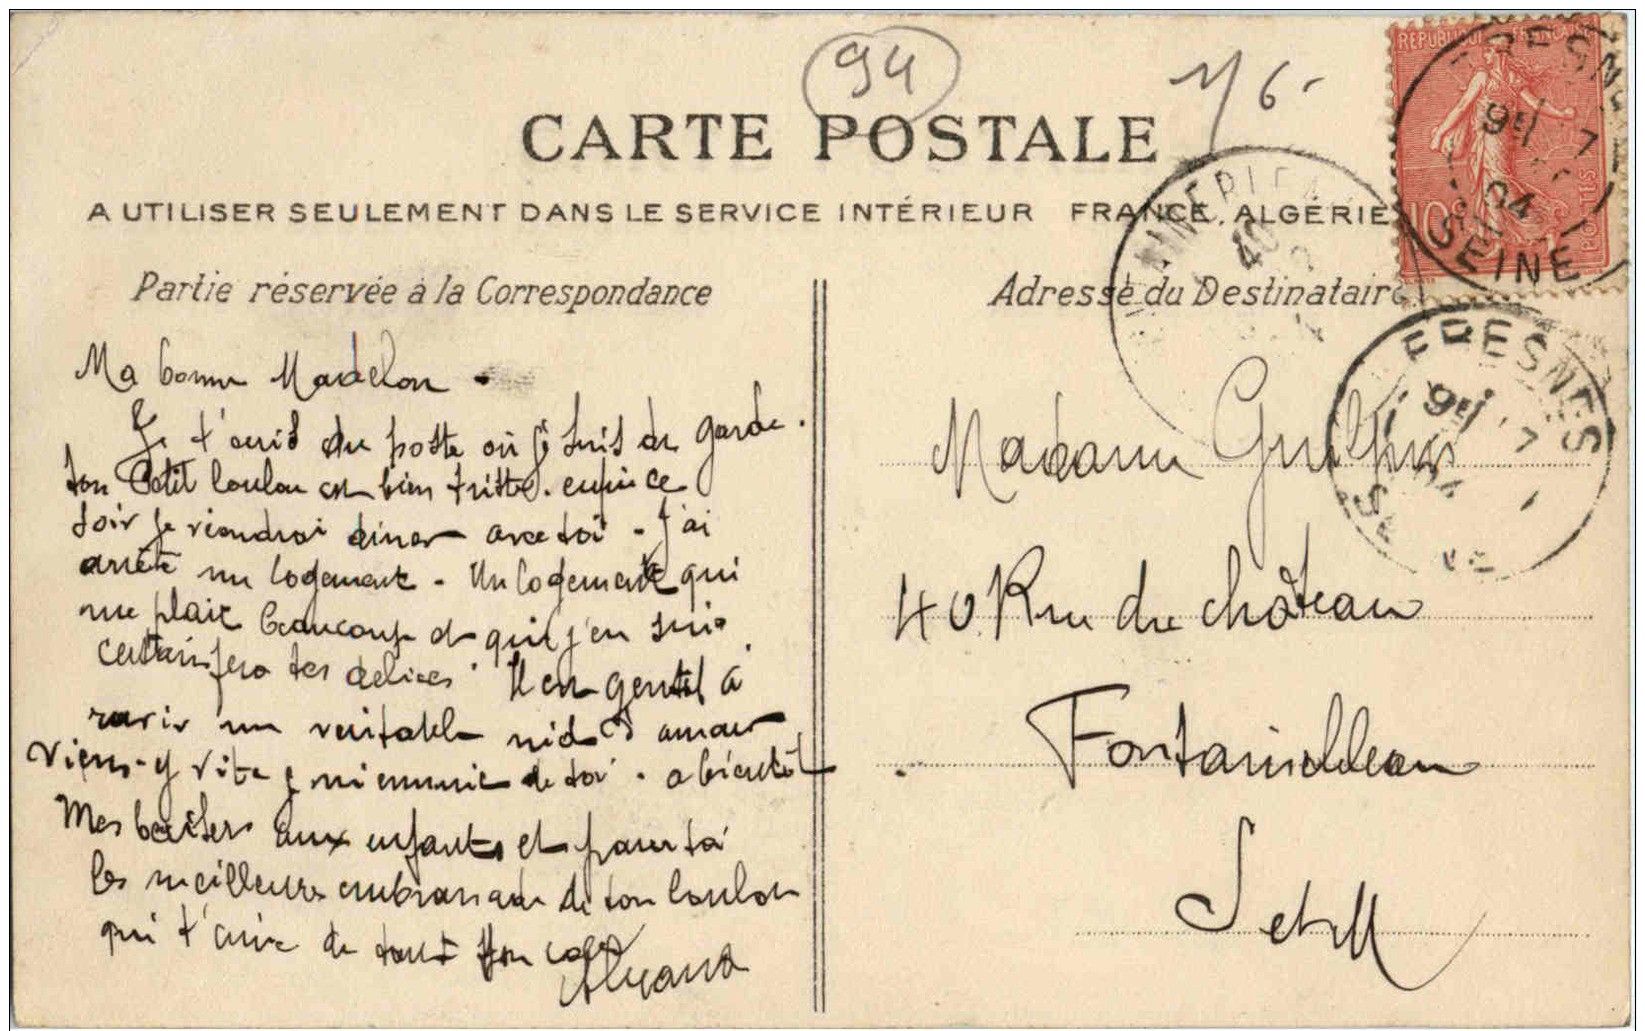 94
1/6-
CARTE POSTALE
A UTILISER SEULEMENT DANS LE SERVICE INTÉRIEUR FRANCE, ALGÉRIE
Partie réservée à la Correspondance
Ma bonne Madelon
Je t'ecris du poste où je suis de garde.
ton Petit loulou est bien triste. enfin ce
soir je viendrai diner avec toi - J'ai
arrêté un logement - Un logement qui
me plait beaucoup et qui j'en suis
certain fera tes delices Il est gentil à
ravir un veritable nid d'amour
Viens-y vite je m'ennuie de toi. a bientôt
Mes baisers aux enfants et pour toi
les meilleures embrassades de ton loulou
qui t'aime de tout son coeur
Adresse du Destinataire
Madame
40 Rue du château
Fontainebleau
S et M
REPUBLIQUE FRANCAISE
10c
POSTES
FRESNES
SEINE
9H 7
04
FRESNES
9H 7
04
40